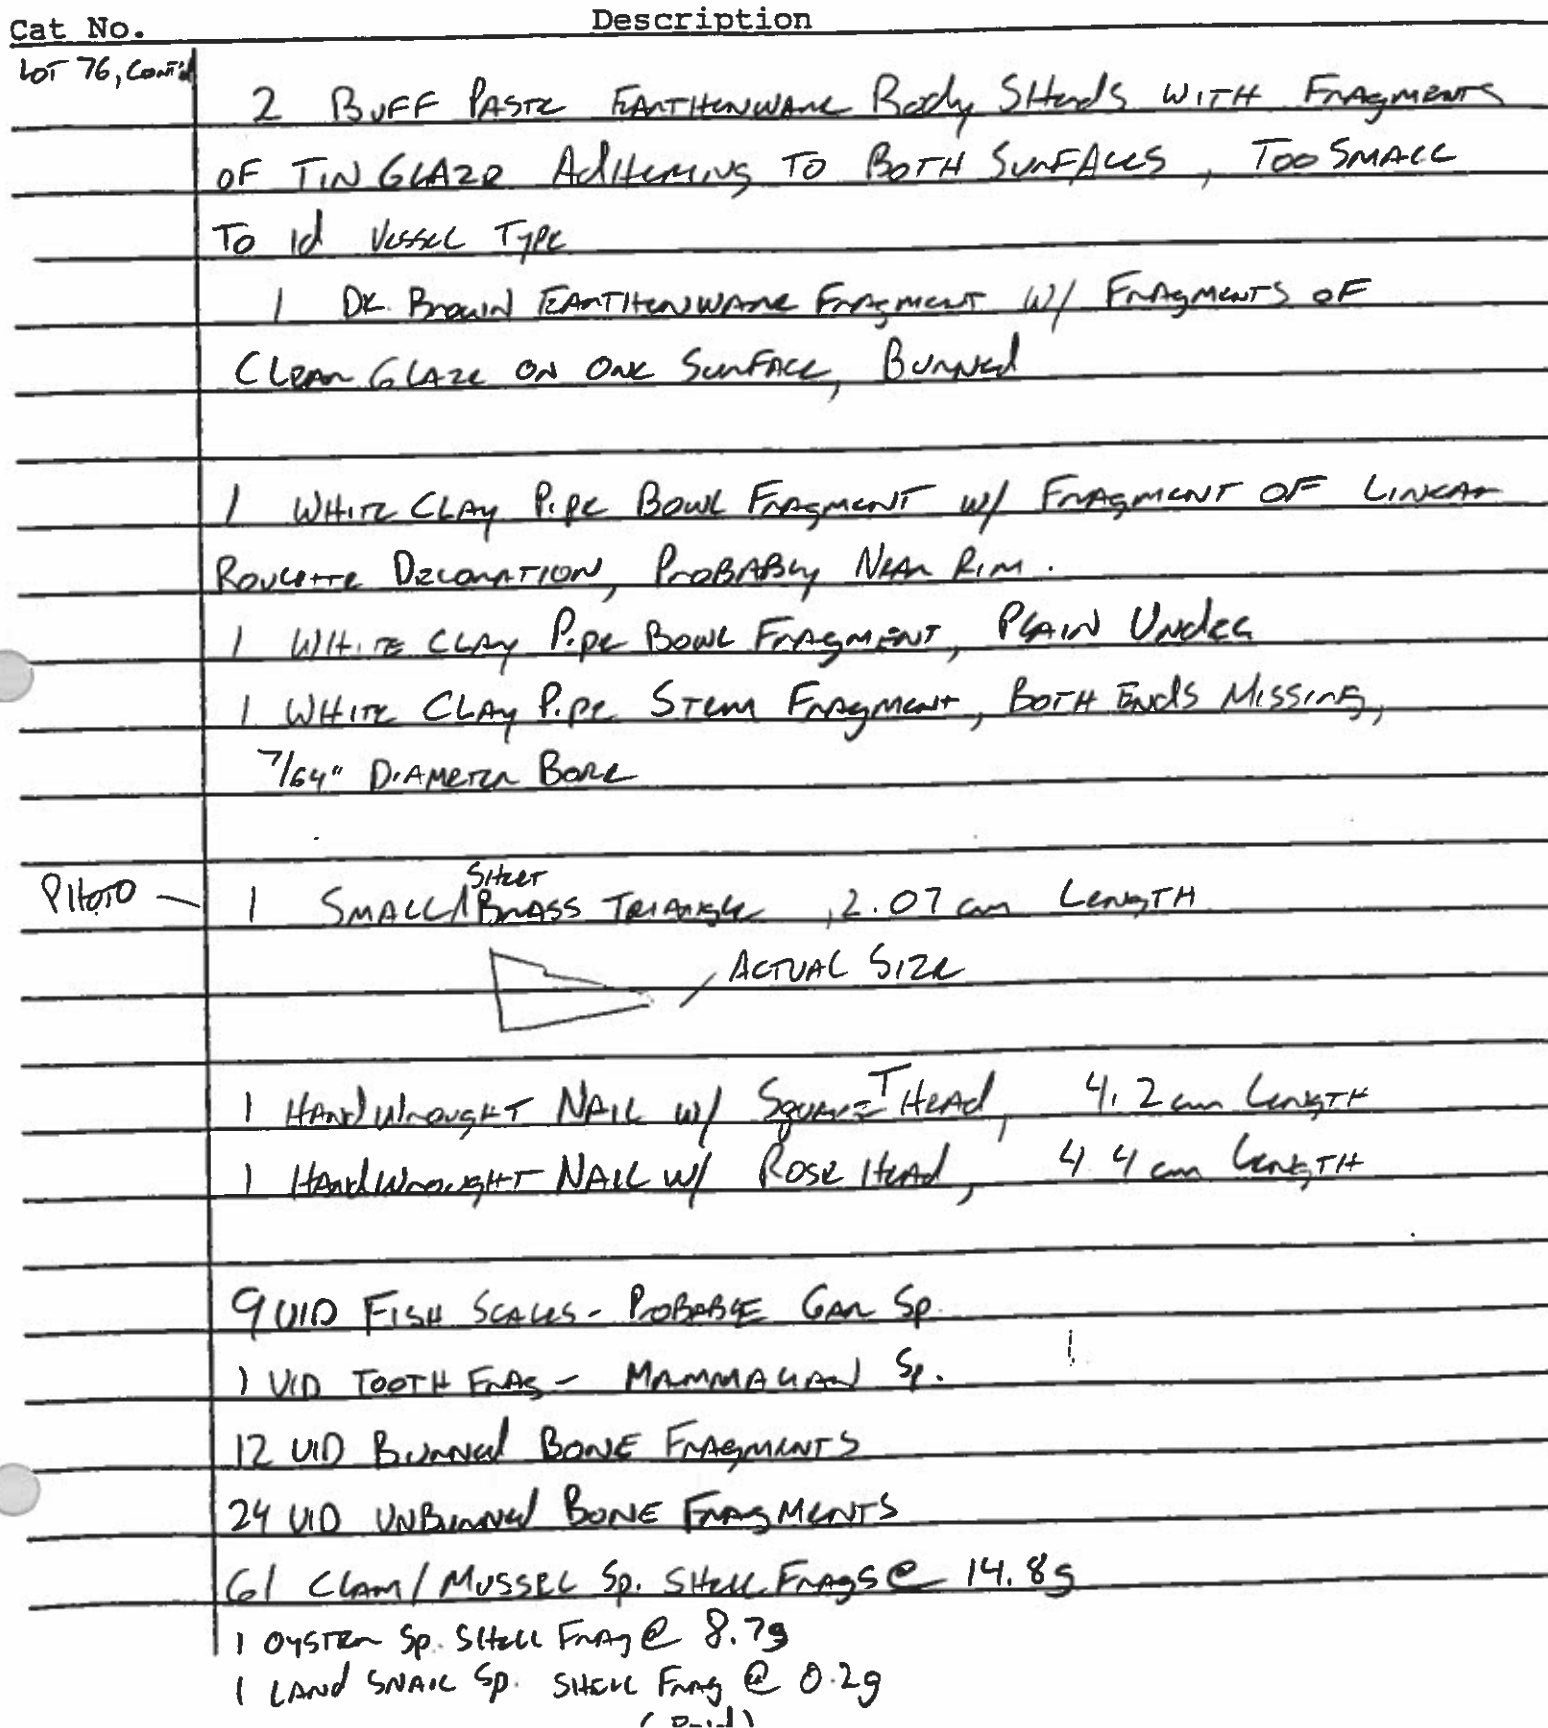 Cat No. Description
LOT 76, CONT'd
2 BUFF PASTE EARTHENWARE Body SHERdS WITH FRAGMENTS
OF TIN GLAZE AdHERING TO BOTH SURFACES, TOO SMALL
TO Id VESSEL TYPE
1 DK. BROWN EARTHENWARE FRAGMENT W/ FRAGMENTS OF
CLEAR GLAZE ON ONE SURFACE, BURNEd
1 WHITE CLAY PIPE BOWL FRAGMENT W/ FRAGMENT OF LINEAR
ROULETTE DECORATION, PROBABLY NEAR RIM.
1 WHITE CLAY PIPE BOWL FRAGMENT, PLAIN UNdEC
1 WHITE CLAY PIPE STEM FRAGMENT, BOTH ENdS MISSING,
7/64" DIAMETER BORE
PHOTO 1 SMALL SHEET BRASS TRIANGLE, 2.07 cm LENGTH
ACTUAL SIZE
1 HANdWROUGHT NAIL W/ SQUARE T HEAd, 4.2 cm LENGTH
1 HANdWROUGHT NAIL W/ ROSE HEAd, 4.4 cm LENGTH
9 UID FISH SCALES - PROBABLE GAR Sp.
1 UID TOOTH FRAG - MAMMALIAN Sp.
12 UID BURNEd BONE FRAGMENTS
24 UID UNBURNEd BONE FRAGMENTS
61 CLAM/MUSSEL Sp. SHELL FRAGS @ 14.8g
1 OYSTER Sp. SHELL FRAG @ 8.7g
1 LANd SNAIL Sp. SHELL FRAG @ 0.2g